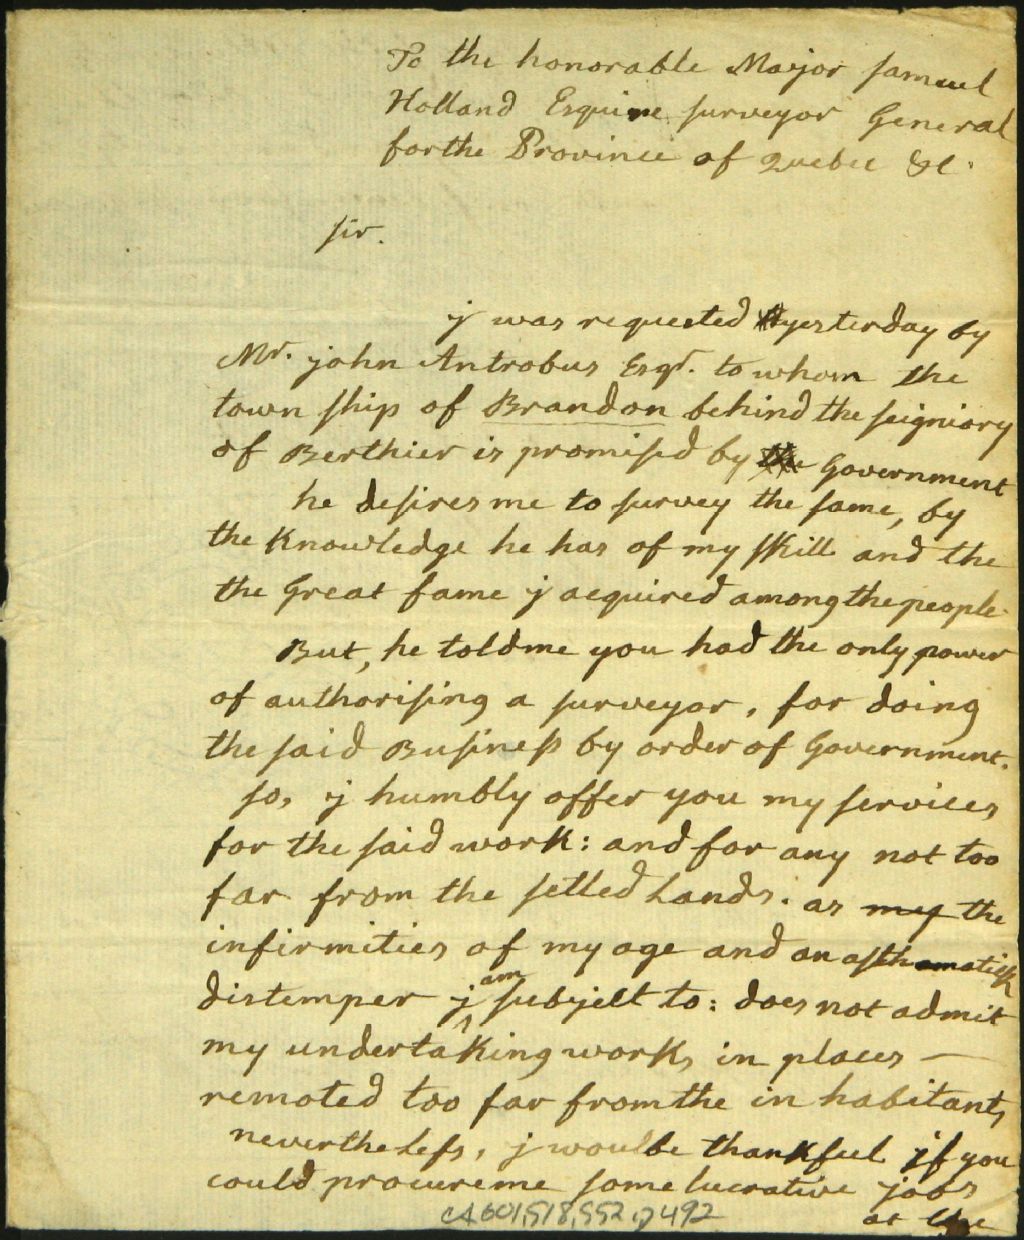 To the honorable Major samuel
Holland Esquire surveyor General
for the Province of Quebec &c.
sir.
j was requested yesterday by
Mr. john Antrobus Esqr. to whom the
town ship of Brandon behind the seigniory
of Berthier is promised by the Government
he desires me to survey the same, by
the Knowledge he has of my skill and the
the Great fame j acquired among the people.
But, he told me you had the only power
of authorising a surveyor, for doing
the said Business by order of Government.
so, j humbly offer you my services
for the said work: and for any not too
far from the setled Lands. as my the
infirmities of my age and an asthmatick
distemper j am subject to: does not admit
my undertaking works in places —
remoted too far from the in habitants
nevertheless, j woul be thankful jf you
could procure me some lucrative jobs
at the
CA601,S18,SS2,D492